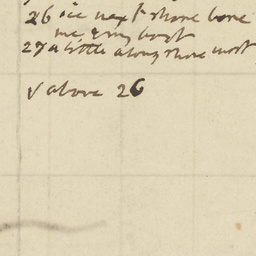 26 ice next shore bore
me & my boat
27 a little along shore most
v above 26